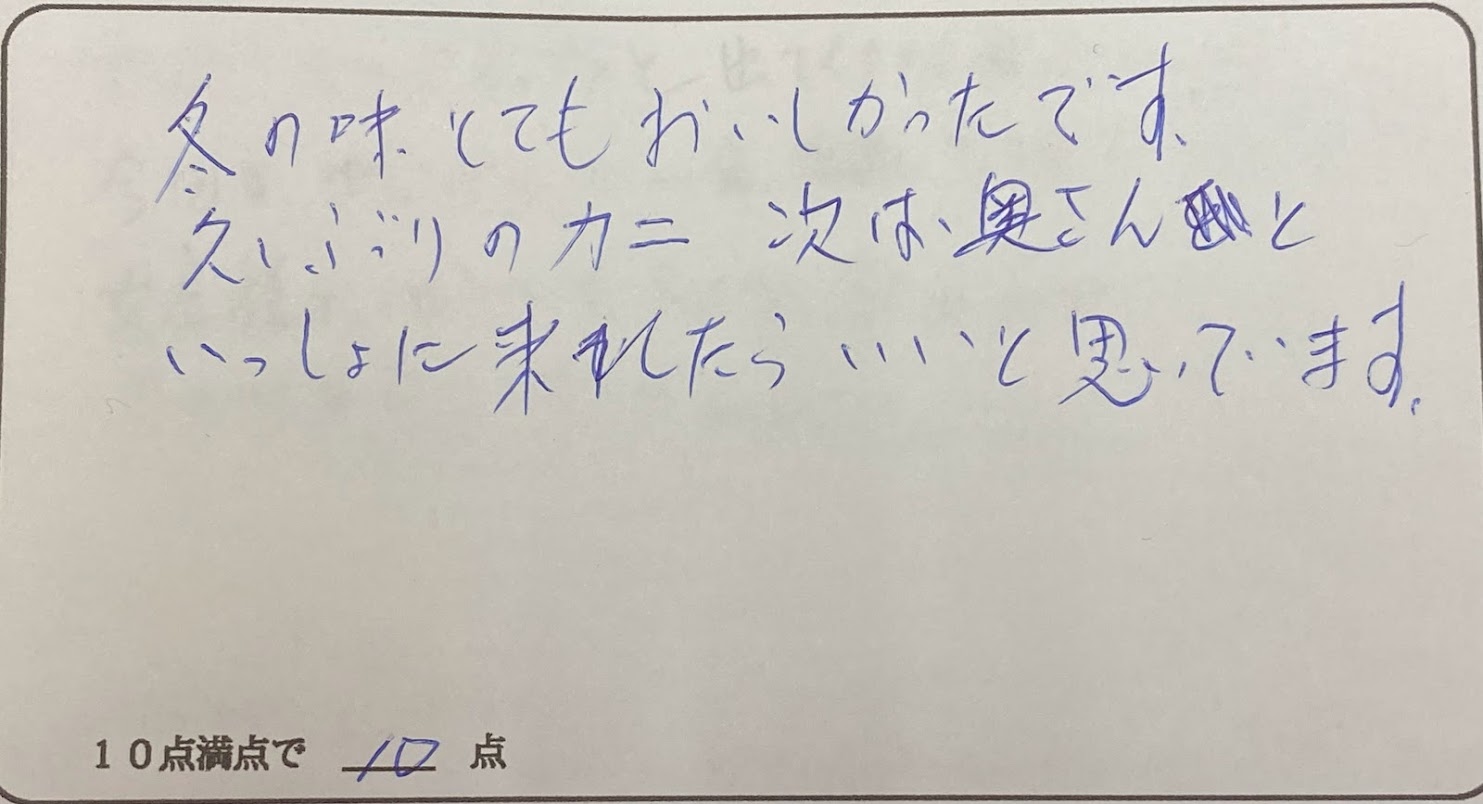 冬の味とてもおいしかったです、
久しぶりのカニ 次は、奥さんと
いっしょに来れたらいいと思っています.
10点満点で 10 点